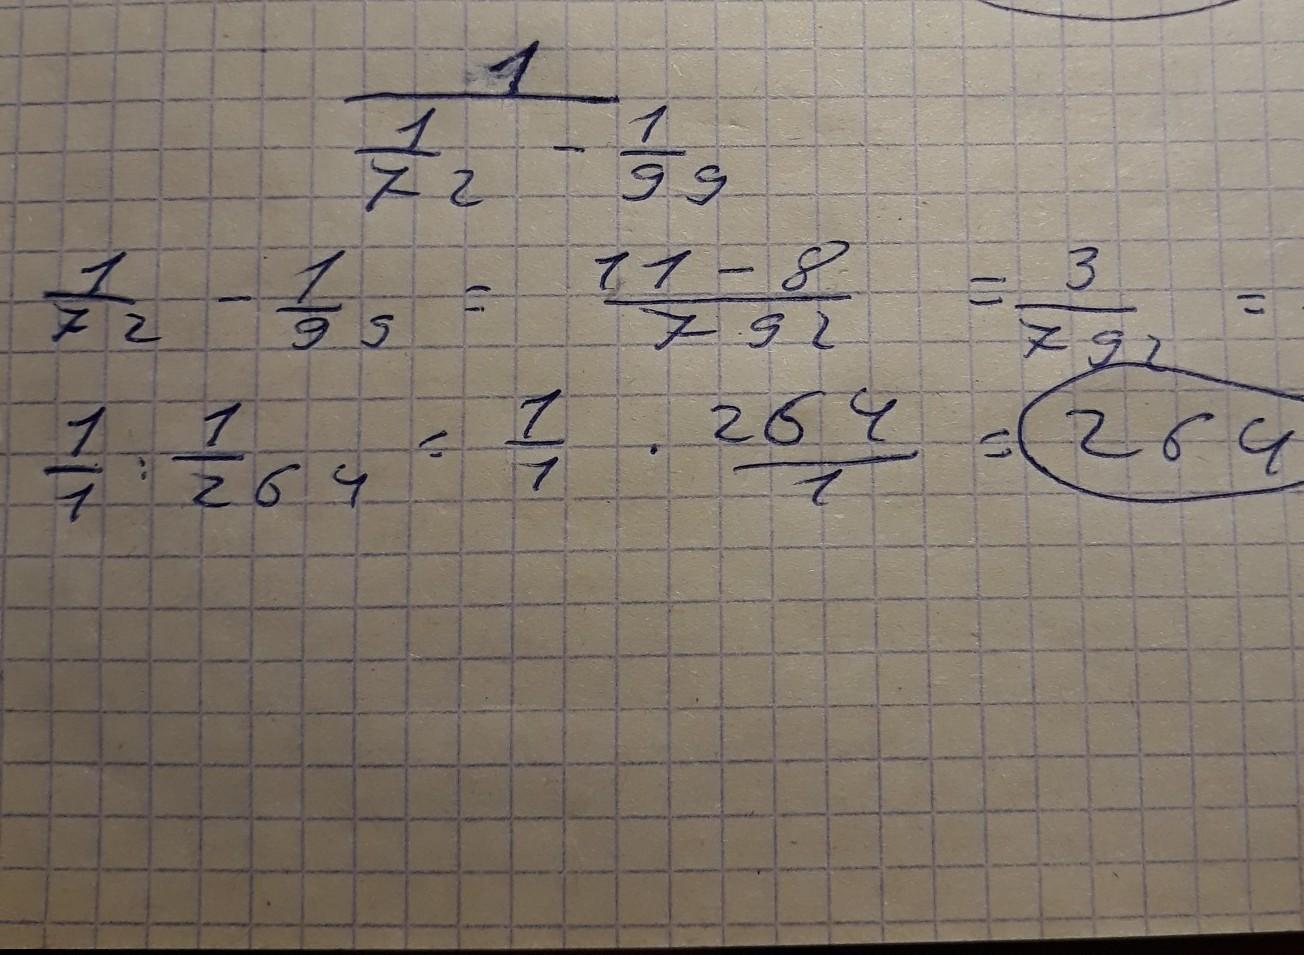 1
1/72 - 1/99
1/72 - 1/99 = 11-8/792 = 3/792 =
1/1 : 1/264 = 1/1 · 264/1 = 264